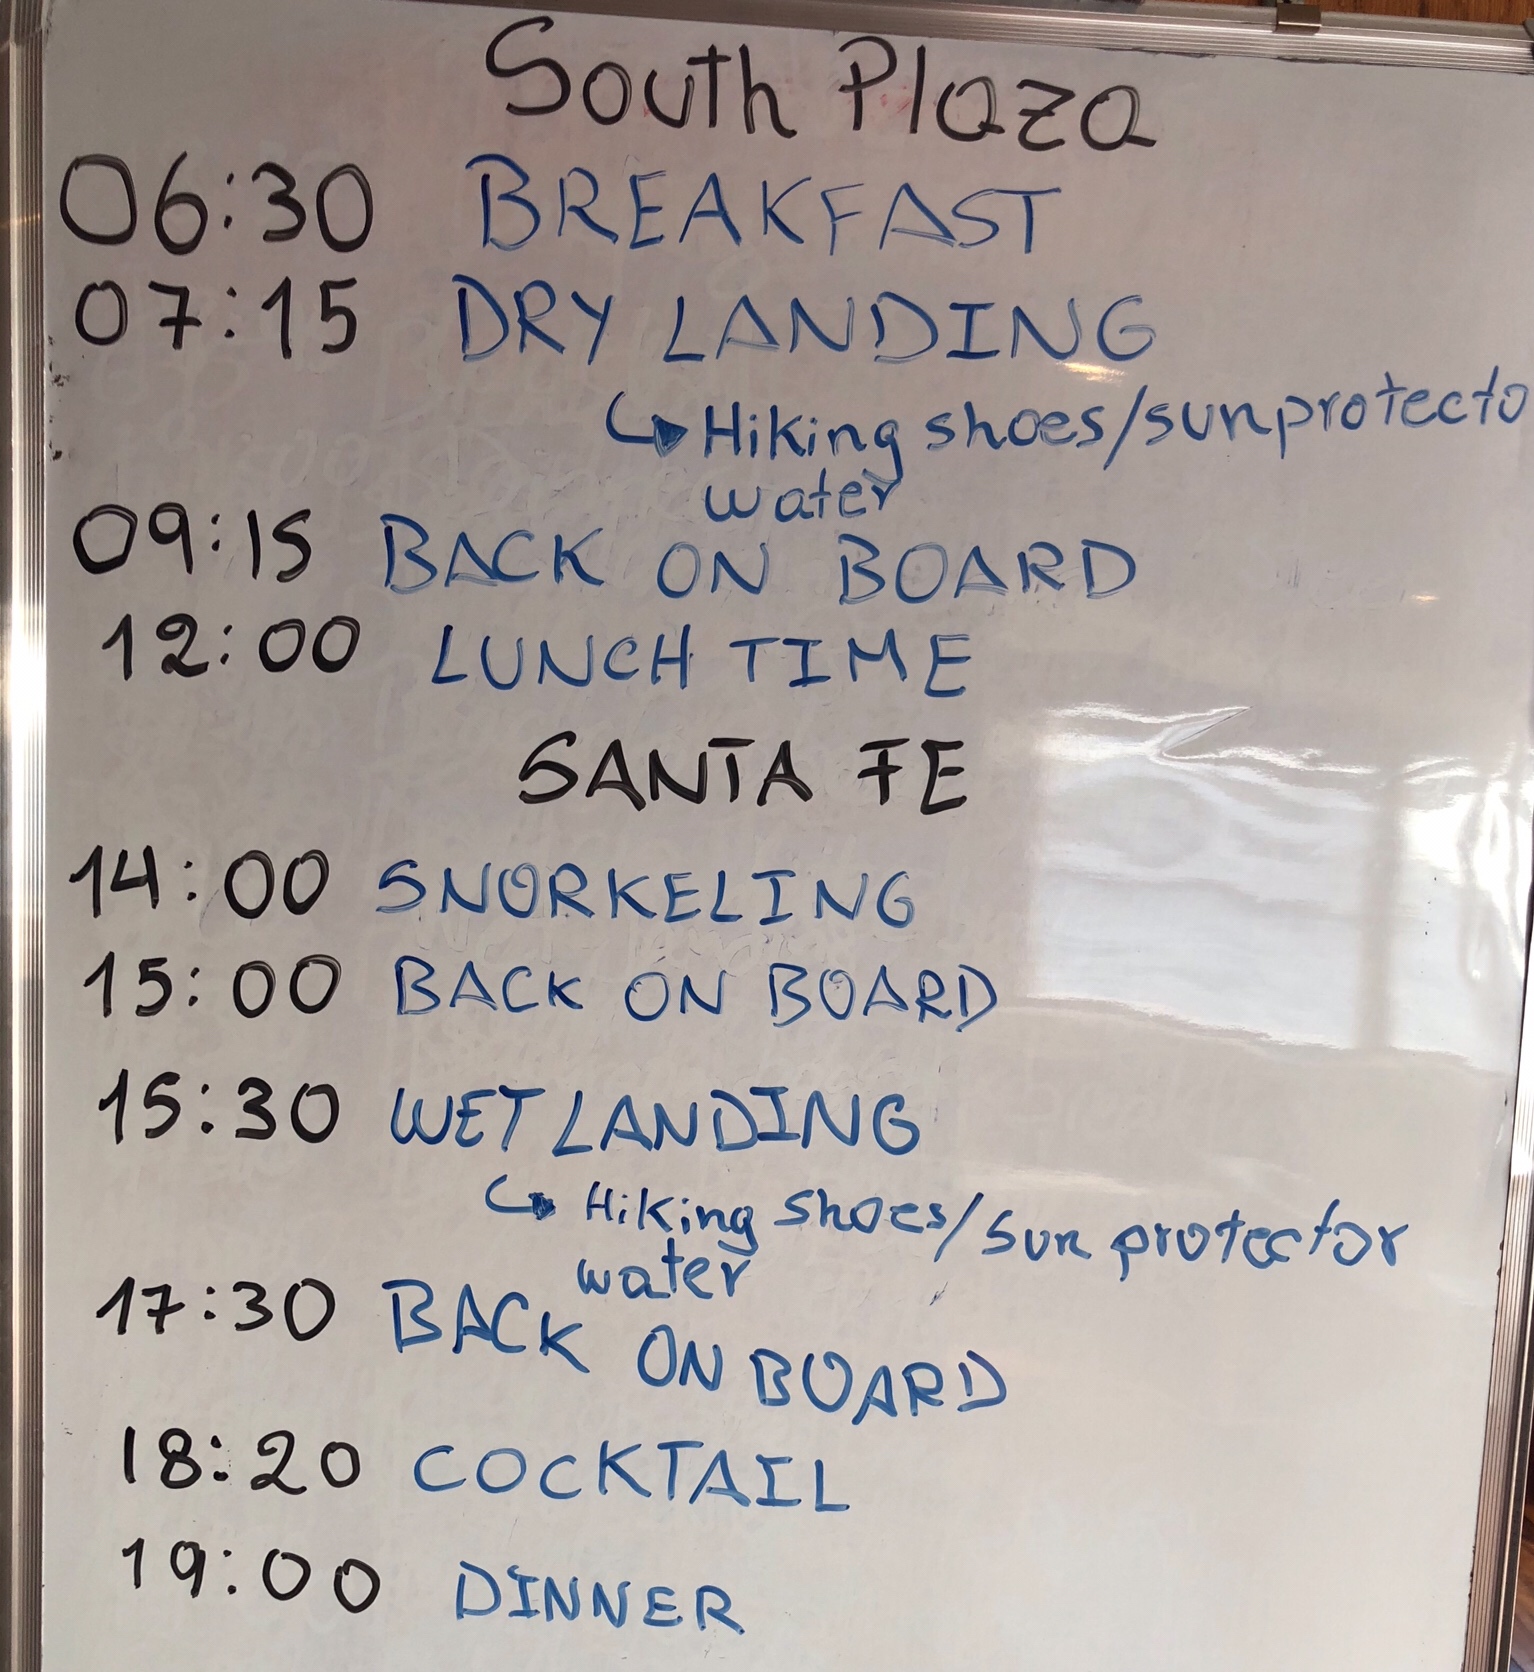 South Plaza
06:30 BREAKFAST
07:15 DRY LANDING
Hiking shoes/sunprotecto
water
09:15 BACK ON BOARD
12:00 LUNCH TIME
SANTA FE
14:00 SNORKELING
15:00 BACK ON BOARD
15:30 WET LANDING
Hiking shoes/sun protector
water
17:30 BACK ON BOARD
18:20 COCKTAIL
19:00 DINNER